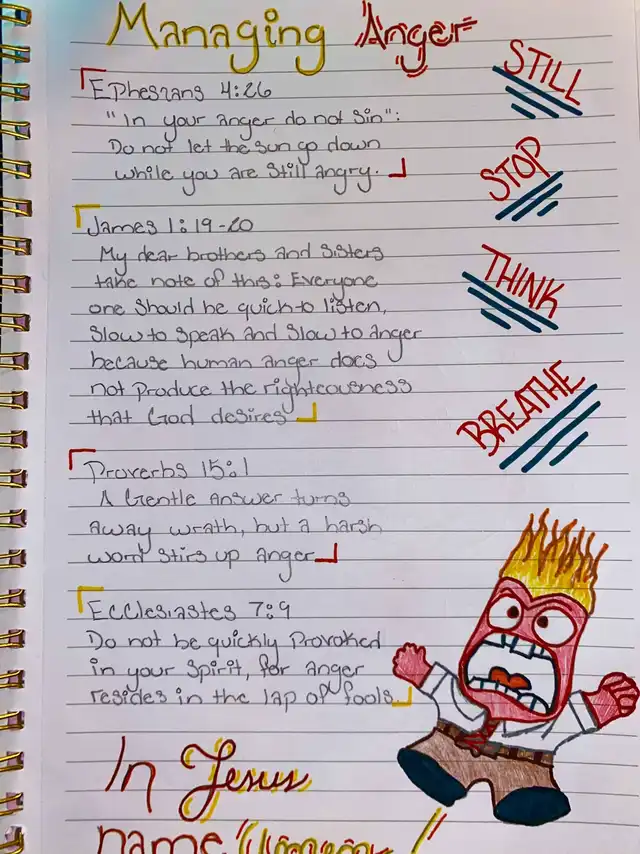 Managing Anger
Ephesians 4:26
"In your anger do not sin":
Do not let the sun go down
while you are still angry.
James 1:19-20
My dear brothers and sisters
take note of this: Everyone
one should be quick to listen,
Slow to speak and slow to anger
because human anger does
not produce the righteousness
that God desires
Proverbs 15:1
A Gentle answer turns
away wrath, but a harsh
word stirs up anger
Ecclesiastes 7:9
Do not be quickly Provoked
in your spirit, for anger
resides in the lap of fools
In Jesus
name
STILL
STOP
THINK
BREATHE